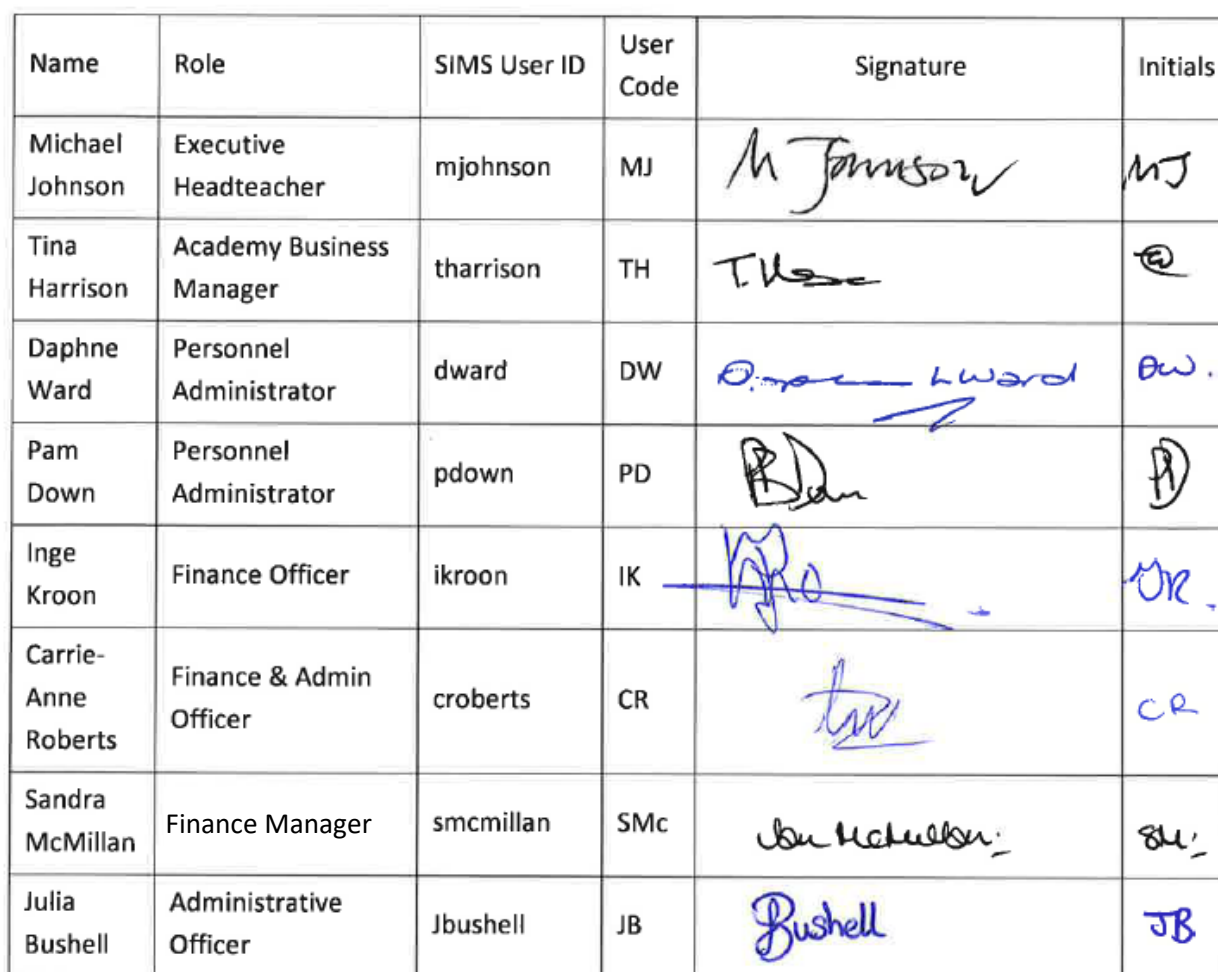 Name Role SIMS User ID User Code Signature Initials
Michael Johnson Executive Headteacher mjohnson MJ M Johnson MJ
Tina Harrison Academy Business Manager tharrison TH
Daphne Ward Personnel Administrator dward DW L Ward DW.
Pam Down Personnel Administrator pdown PD PD
Inge Kroon Finance Officer ikroon IK
Carrie-Anne Roberts Finance & Admin Officer croberts CR CR
Sandra McMillan Finance Manager smcmillan SMc
Julia Bushell Administrative Officer Jbushell JB JBushell JB